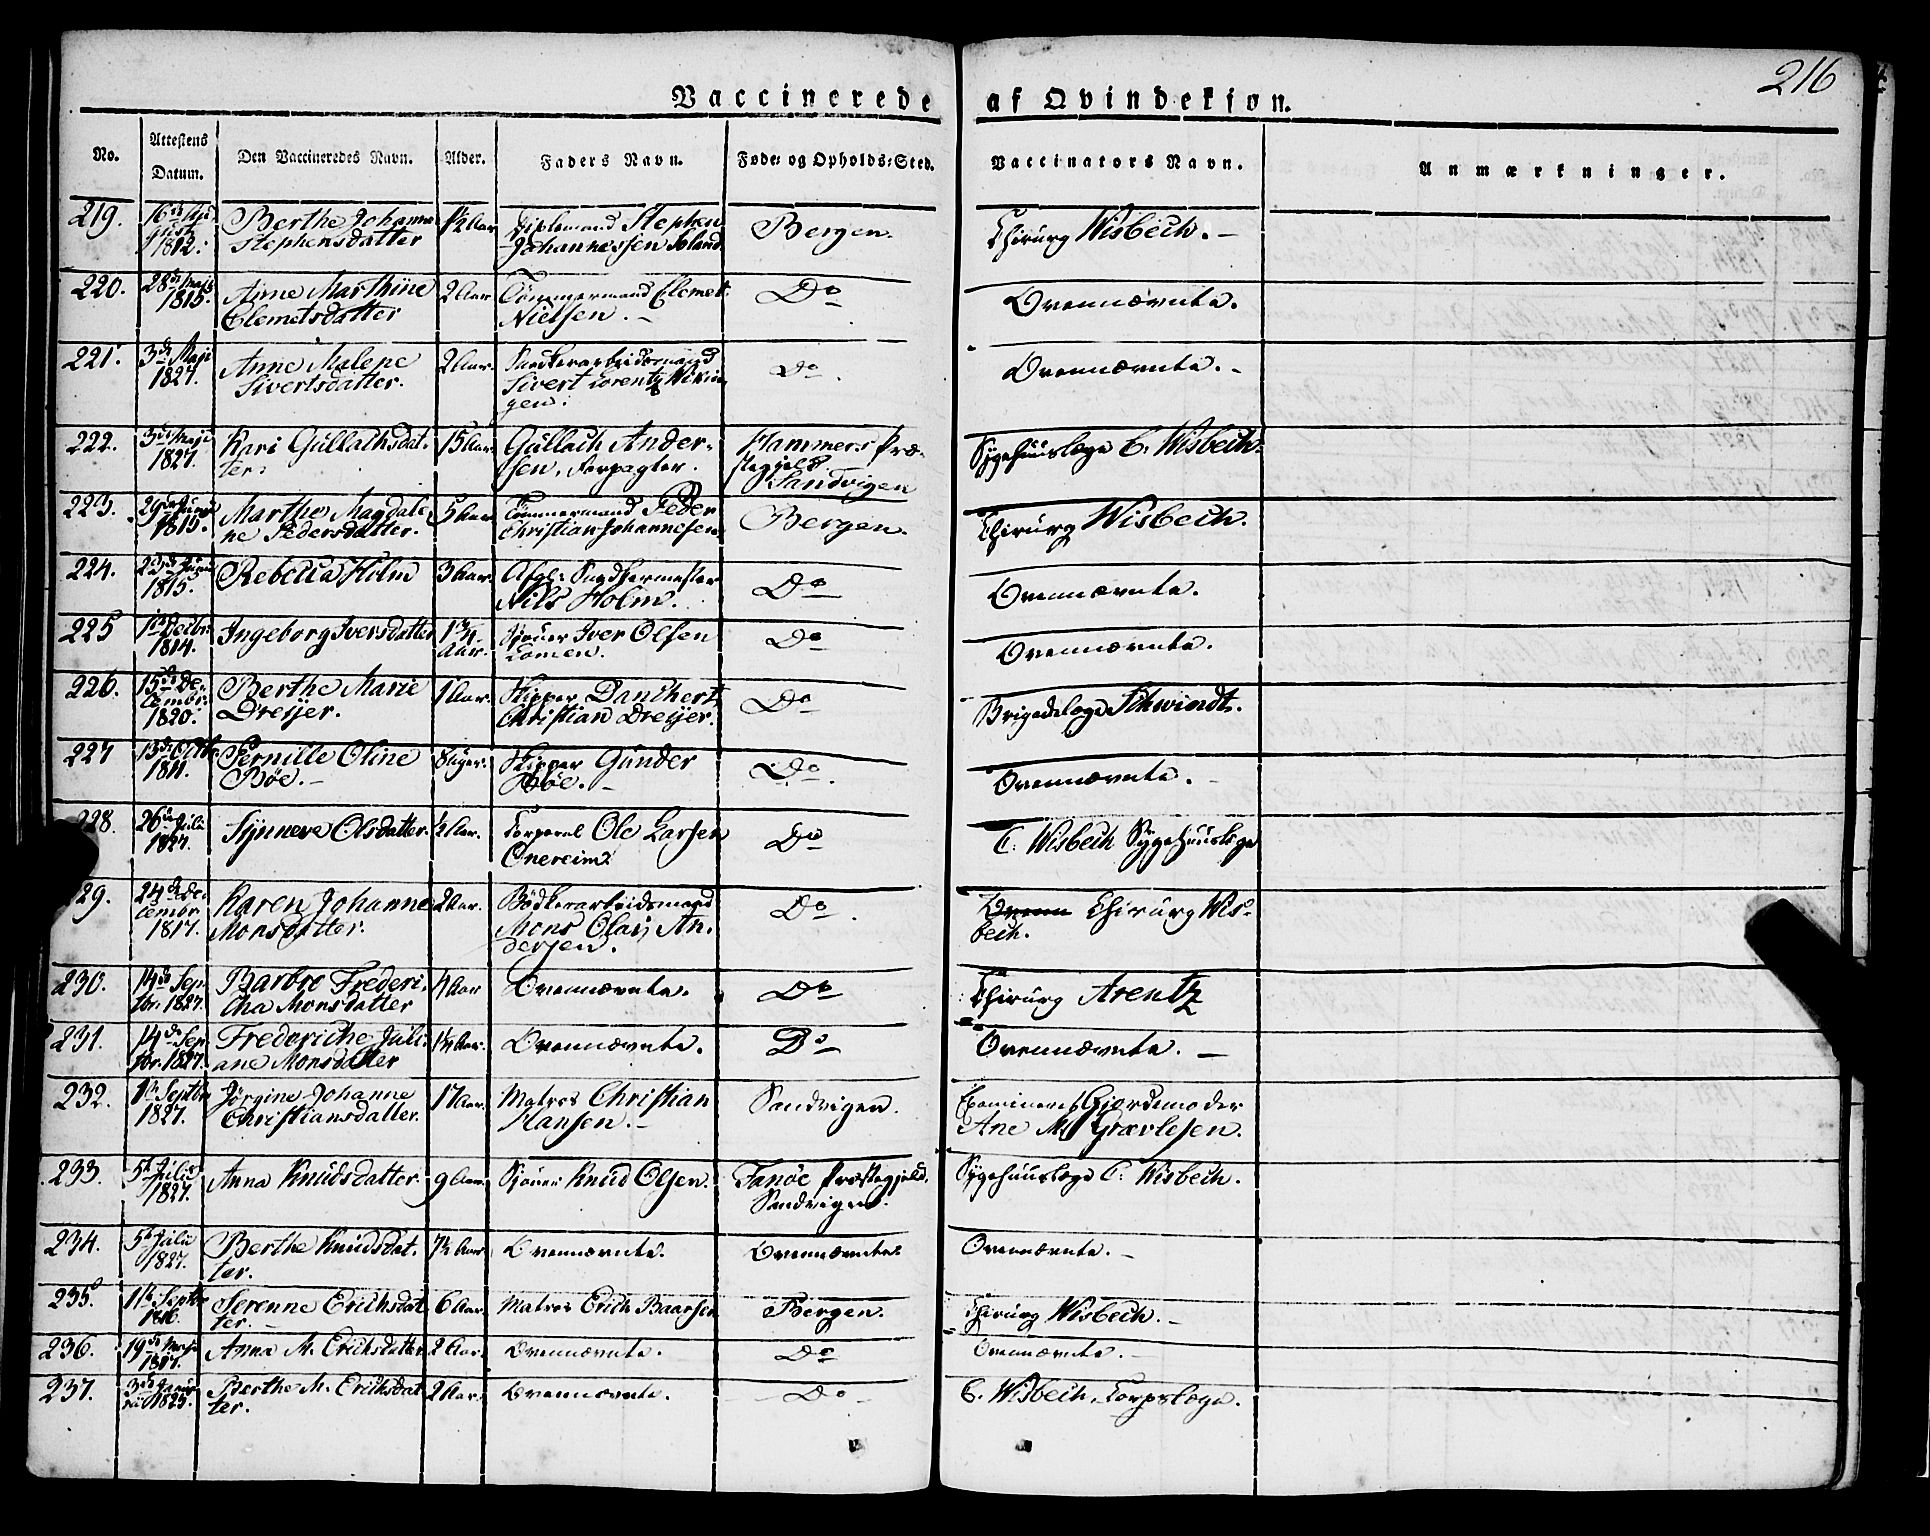 216
Vaccinerede af Qvindekjøn.
No. Attestens Datum. Den Vaccineredes Navn. Alder. Faders Navn. Føde- og Opholds-Sted. Vaccinators Navn. Anmærkninger.
219. 1812. Berthe Johanne Stephensdatter 1½ Aar Stephen Johannessen Bergen. Chirurg Wisbech. –
220. 28de Maji 1815. Anne Marthine Clemetsdatter 2 Aar Tömmermand Clemet Nielsen. – Do Ovennævnte.
221. 3de Maji 1827. Anne Malene Sivertsdatter. 2 Aar. Snedkerarbeidsmand Sivert Lorentz Wikingen. Do. Ovennævnte. –
222. 3de Maji 1827. Kari Gullachsdatter. 15 Aar. Gullach Andersen, Forpagter. Hammers Præstegjeld Sandvigen Sygehuuslæge C. Wisbech.
223. 1815. Marthe Magdalene Pedersdatter. 5 Aar Tömmermand Peder Christian Johannesen. Bergen. Chirurg Wisbech.
224. 1815. Rebecca Holm 3 Aar. Afgl: Snedkermester Nils Holm. Do Ovennævnte.
225 1ste Decbr. 1814. Ingeborg Iversdatter 1¾ Aar. Iver Olsen Do Ovennævnte.
226. 15de December 1820. Berthe Marie Dreijer. 1 Aar. Skipper Danchert Christian Dreijer. Do Brigadelæge Schwindt.
227 13de Octbr. 1811. Pernille Oline Böe. – 8 Uger. Skipper Gunder Böe. – Do. Ovennævnte. –
228. 26de Juli 1827. Synneve Olsdatter. ½ Aar. Corporal Ole Larsen Do C. Wisbech Sygehuuslæge
229. 24de December 1817. Karen Johanne Monsdatter. 2 Aar. Bödkerarbeidsmand Mons Olai Andersen. Do. Chirurg Wisbech.
230. 14de Sepbr. 1827. Barbro Fredericha Monsdatter Aar Ovennævnte. Do Chirurg Arentz
231. 14de Sepbr. 1827. Frederiche Juliane Monsdatter Aar. Ovennævnte. Do Ovennævnte. –
232. Septbr 1827. Jörgine Johanne Christiansdatter. 17 Aar. Matros Christian Hansen. – Sandvigen. Examineret Gjordemoder Ane M.
233. 5te Julii 1827. Anna Knudsdatter. 9 Aar. Knud Olsen. Fanöe Præstegjeld. Sandvigen. Sygehuuslæge C. Wisbech.
234. 5te Julii 1827. Berthe Knudsdatter. 7½ Aar. Ovennævnte. Ovennævnte Ovennævnte. –
235. Septbr 1816. Serenne Erichsdatter. – 6 Aar. Matros Erich Baarsen Bergen. Chirurg Wisbech. –
236. 19de Maji 1817. Anna M. Erichsdatter 2 Aar. Ovennævnte. Do Ovennævnte. –
237. 1825. Berthe M. Erichsdatter. 2 Aar. Ovennævnte. Do C. Wisbech, Corpslæge.